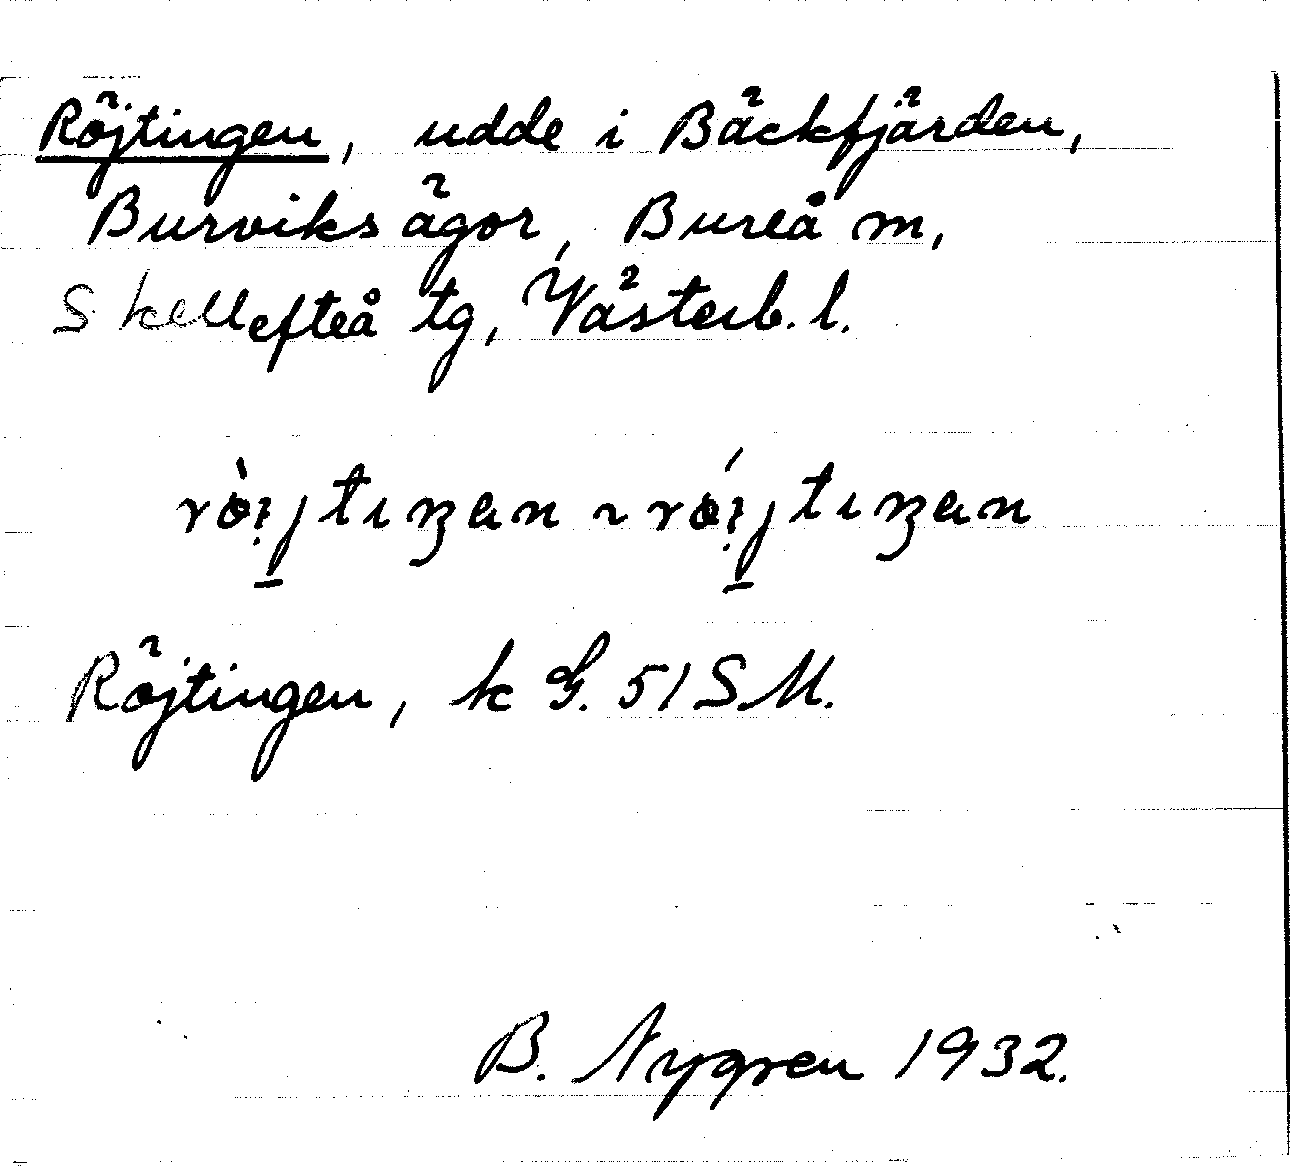 Röjtingen, udde i Bäckfjärden,
Burviks ägor, Bureå m,
Skellefteå tg, Västerb. l.
Röjtingen, k G. 51 S.M.
B. Nygren 1932.